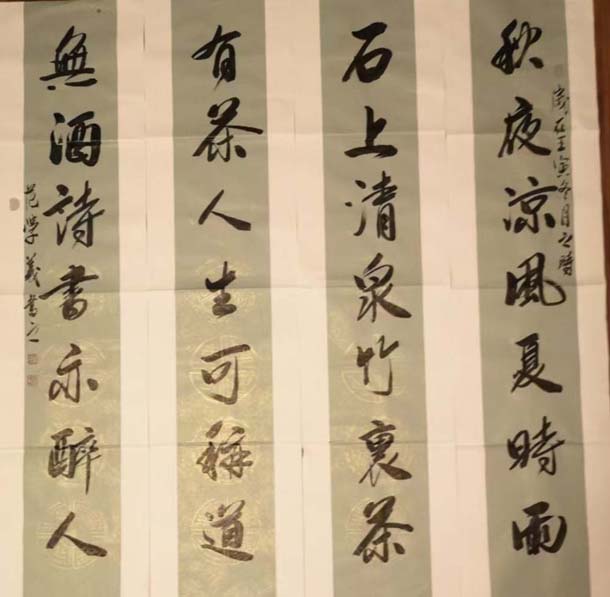 歲在壬寅冬月之時
秋夜凉風夏時雨
石上清泉竹裏茶
有茶人生可稱道
無酒詩書亦醉人
范學義書之